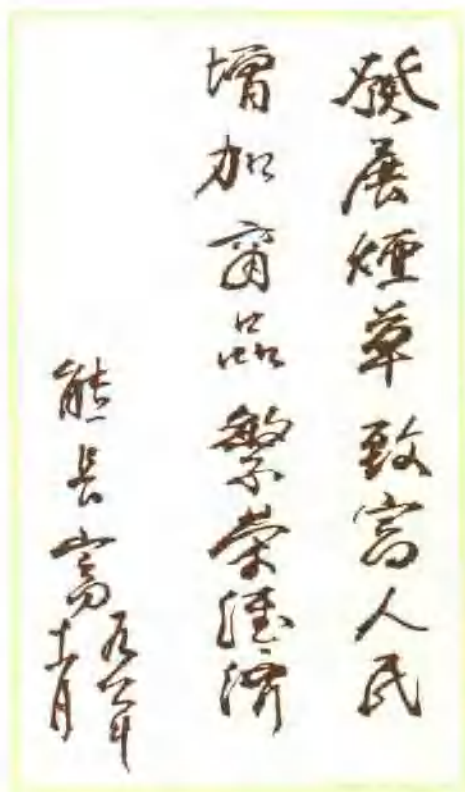 發展煙草致富人民
增加商品繁荣经济
熊長富
九〇年
十一月